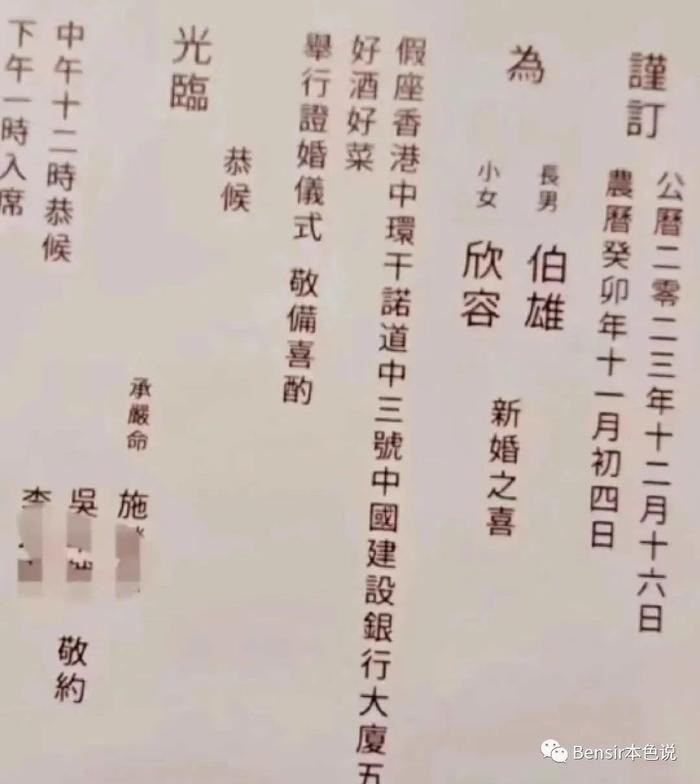 謹訂
公曆二零二三年十二月十六日
農曆癸卯年十一月初四日
為
長男 伯雄
小女 欣容
新婚之喜
假座香港中環干諾道中三號中國建設銀行大廈五
好酒好菜
舉行證婚儀式 敬備喜酌
恭候
光臨
承嚴命 施
吳
李
敬約
中午十二時恭候
下午一時入席
Bensir本色说